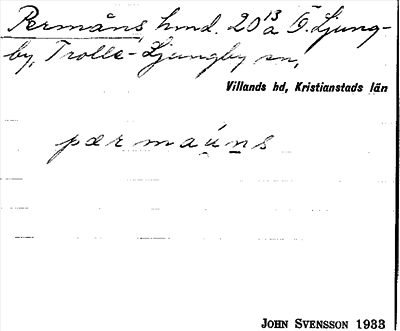 Permåns, hmd. 20¹³a T. Ljung-
by, Trolle-Ljungby sn,
Villands hd, Kristianstads län
pærmaúns
JOHN SVENSSON 1933